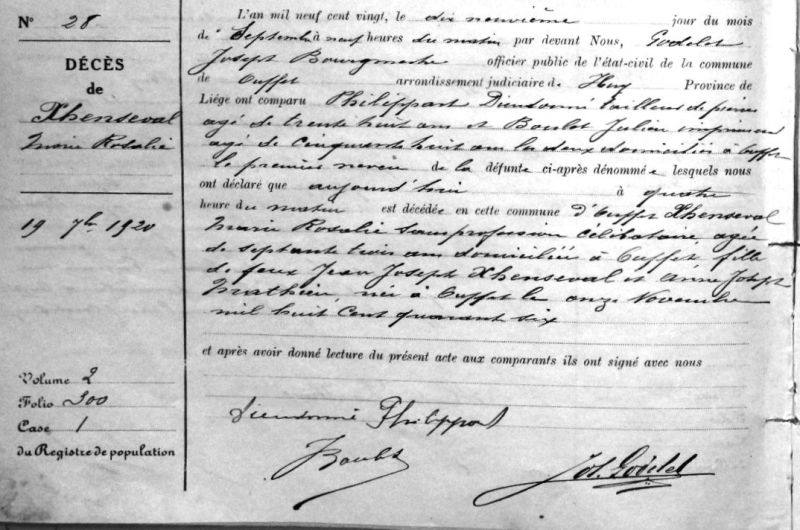 N° 28
DÉCÈS
de
Xhenseval
Marie Rosalie
19 7bre 1920
Volume 2
Folio 300
Case 1
du Registre de population
L'an mil neuf cent vingt, le dix neuvième jour du mois
de Septembre à neuf heures du matin par devant Nous, Godelet
Joseph Bourgmestre officier public de l'état-civil de la commune
de Ouffet arrondissement judiciaire de Huy Province de
Liége ont comparu Philippart Dieudonné tailleur de pierres
agé de trente huit ans et Boulot Julien
agé de cinquante huit ans les deux domiciliés à Ouffet
le premier neveu de la défunte ci-après dénommée lesquels nous
ont déclaré que aujourd'hui à quatre
heure du matin est décédée en cette commune d'Ouffet Xhenseval
Marie Rosalie sans profession célibataire agée
de septante trois ans domiciliée à Ouffet fille
de feux Jean Joseph Xhenseval et Anne Joseph
Mathieu, née à Ouffet le onze Novembre
mil huit cent quarante six
et après avoir donné lecture du présent acte aux comparants ils ont signé avec nous
Dieudonné Philippart
JBoulot
Jos. Godelet